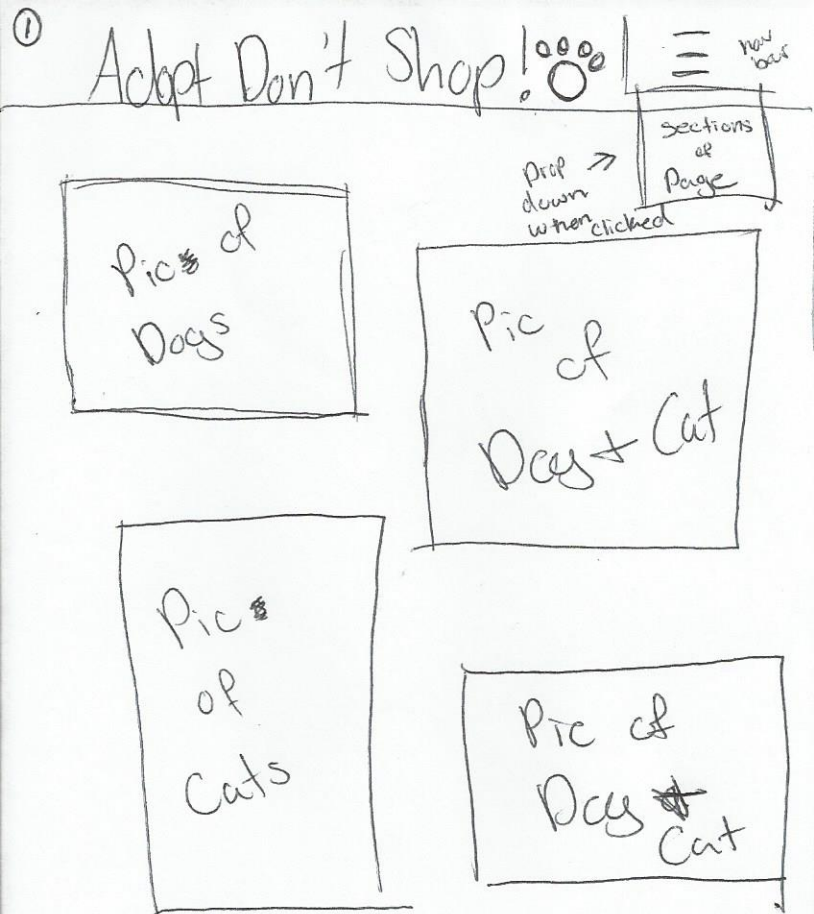 ①
Adopt Don't Shop!
nav
bar
sections
of
Page
Drop
down
when clicked
Pic of
Dogs
Pic
of
Dog + Cat
Pic
of
Cats
Pic of
Dog +
Cat